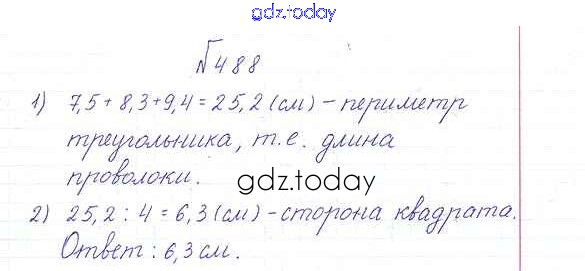 gdz.today
№488
1) 7,5 + 8,3 + 9,4 = 25,2 (см) – периметр
треугольника, т.е. длина
проволоки.
gdz.today
2) 25,2 : 4 = 6,3 (см) – сторона квадрата.
Ответ : 6,3 см.